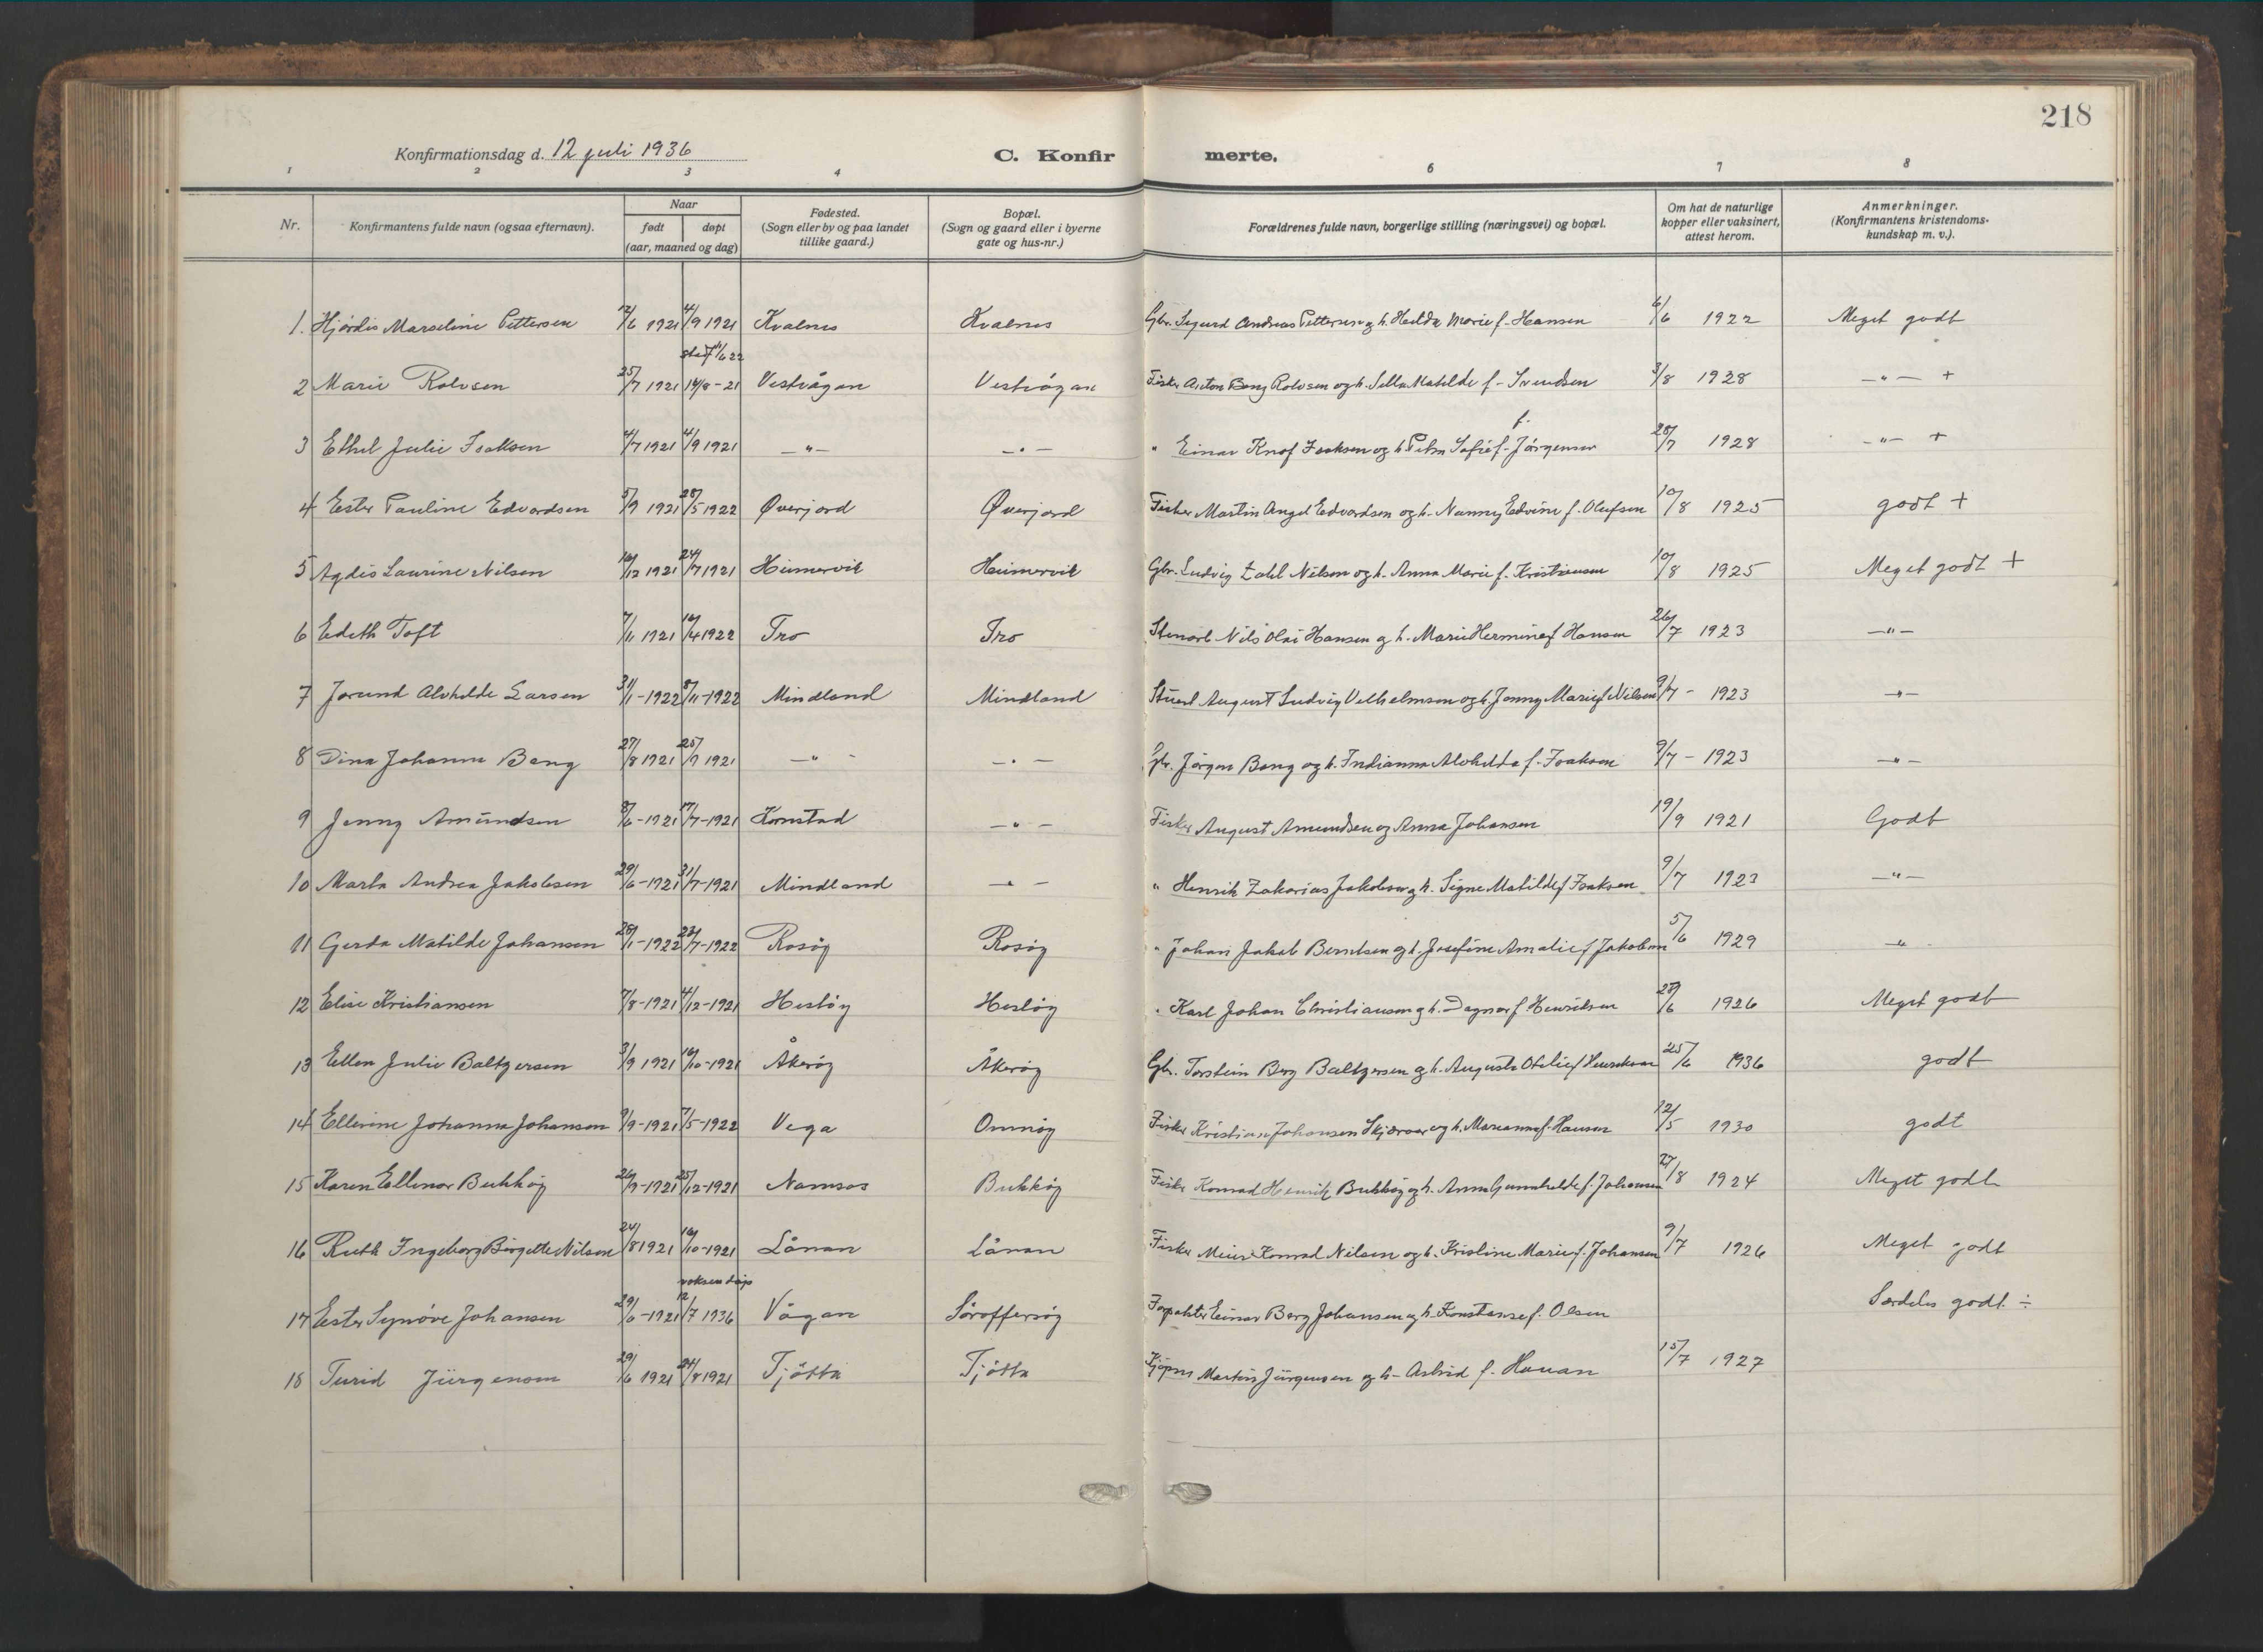 218
Konfirmationsdag d. 12 juli 1936 C. Konfir merte.
1 2 3 4 6 7 8
Nr. Konfirmantens fulde navn (ogsaa efternavn). Naar født døpt (aar, maaned og dag) Fødested. (Sogn eller by og paa landet tillike gaard.) Bopæl. (Sogn og gaard eller i byerne gate og hus-nr.) Forældrenes fulde navn, borgerlige stilling (næringsvei) og bopæl. Om hat de naturlige kopper eller vaksinert, attest herom. Anmerkninger. (Konfirmantens kristendoms-kundskap m. v.).
1. Hjördis Marseline Pettersen 12/6 1921 4/9 1921 Kvalnes Kvalnes Gbr. Sigurd Andreas Pettersen og h. Hilda Marie f. Hansen 6/6 1922 Meget godt
stadf 11/6 22
2 Marie Rolvsen 25/7 1921 14/8-21 Vestvågan Vestvågan Fisker Anton Berg Rolvsen og h. Sella Matilde f. Svendsen 3/8 1928 —"— +
3 Ethel Julie Isaksen 4/7 1921 4/9 1921 —"— —"— " Einar Knof Isaksen og h. Petra Sofie f. Jørgensen 28/7 1928 —"— +
4 Ester Pauline Edvardsen 5/9 1921 28/5 1922 Øverjord Øverjord Fisker Martin Angel Edvardsen og h. Nanny Edvine f. Olufsen 10/8 1925 godt +
5 Agdis Laurine Nilsen 10/12 1921 24/7 1921 Heimervik Heimervik Gbr. Ludvig Zahl Nilsen og h. Anna Marie f. Kristiansen 10/8 1925 Meget godt +
6 Edith Toft 7/11 1921 16/4 1922 Tro Tro Stenarb. Nils Olai Hansen og h. Marie Hermine f. Hansen 26/7 1923 —"—
7 Jorund Alvhilde Larsen 31/1-1922 5/11-1922 Mindland Mindland August Ludvig Velhelmsen og h. Jenny Marie f. Nilsen 9/7- 1923 —"—
8 Dina Johanna Bang 27/8 1921 25/9 1921 —"— —"— Gbr. Jörgen Bang og h. Indianna Alvhilda f. Isaksen 9/7-1923 —"—
9 Jenny Amundsen 8/6-1921 17/7-1921 Kornstad —"— Fisker August Amundsen og Anna Johansen 19/9 1921 Godt
10 Marta Andrea Jakobsen 29/6-1921 31/7-1921 Mindland —"— " Henrik Zakarias Jakobsen og h. Signe Matilde f. Isaksen 9/7 1923 —"—
11 Gerda Matilde Johansen 28/1-1922 23/7-1922 Rosöy Rosöy " Johan Jakob Berntsen og h. Josefine Amalie f. Jakobsen 5/6 1929 —"—
12 Elise Kristiansen 7/8-1921 4/12-1921 Hestöy Hestöy " Karl Johan Christiansen og h. Dagmar f. Henriksen 28/6 1926 Meget godt
13 Ellen Julie Baltzersen 3/9 1921 16/10-1921 Åkeröy Åkeröy Gbr. Torstein Berg Baltzersen og h. Augusta Otelie f. Henriksen 25/6 1936 godt
14 Ellerine Johanna Johansen 9/9-1921 7/5-1922 Vega Omnöy Fisker Kristian Johansen Skjærvær og h. Marianna f. Hansen 12/5 1930 godt
15 Karen Ellinor Bukköy 26/9-1921 25/12-1921 Namsos Bukköy Fisker Konrad Henrik Bukköy og h. Anna Gunnhilde f. Johansen 27/8 1924 Meget godt
16 Ruth Ingeborg Birgitte Nilsen 24/8 1921 16/10-1921 Lånan Lånan Fisker Konrad Nilsen og h. Kristine Marie f. Johansen 9/7 1926 Meget godt
voksendåp
17 Ester Synöve Johansen 29/6-1921 12/7 1936 Vågan Söroffersöy Forpakter Einar Berg Johansen og h. Konstanse f. Olsen Særdeles godt ÷
18 Turid Jürgensen 29/6 1921 24/8 1921 Tjötta Tjötta Kjöpm Martin Jürgensen og h- Astrid f. Hauan 15/7 1927